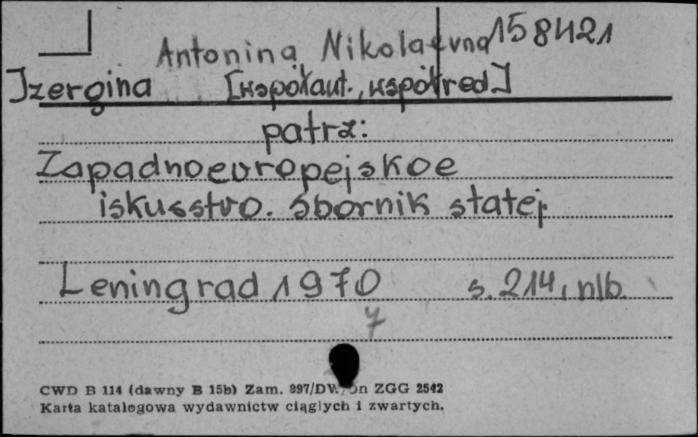 Antonina Nikolaevna 158421
Izergina [współaut., współred.]
patrz:
Zapadnoevropejskoe
iskusstvo. Sbornik statej
Leningrad 1970 s. 214, nlb.
7
CWD B 114 (dawny B 15b) Zam. 997/DW/Jn ZGG 2542
Karta katalogowa wydawnictw ciągłych i zwartych.